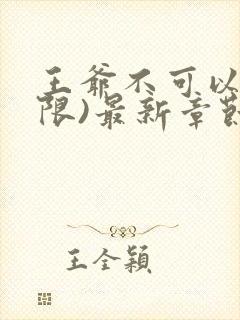 王爷不可以
限)最新章节
王全颖